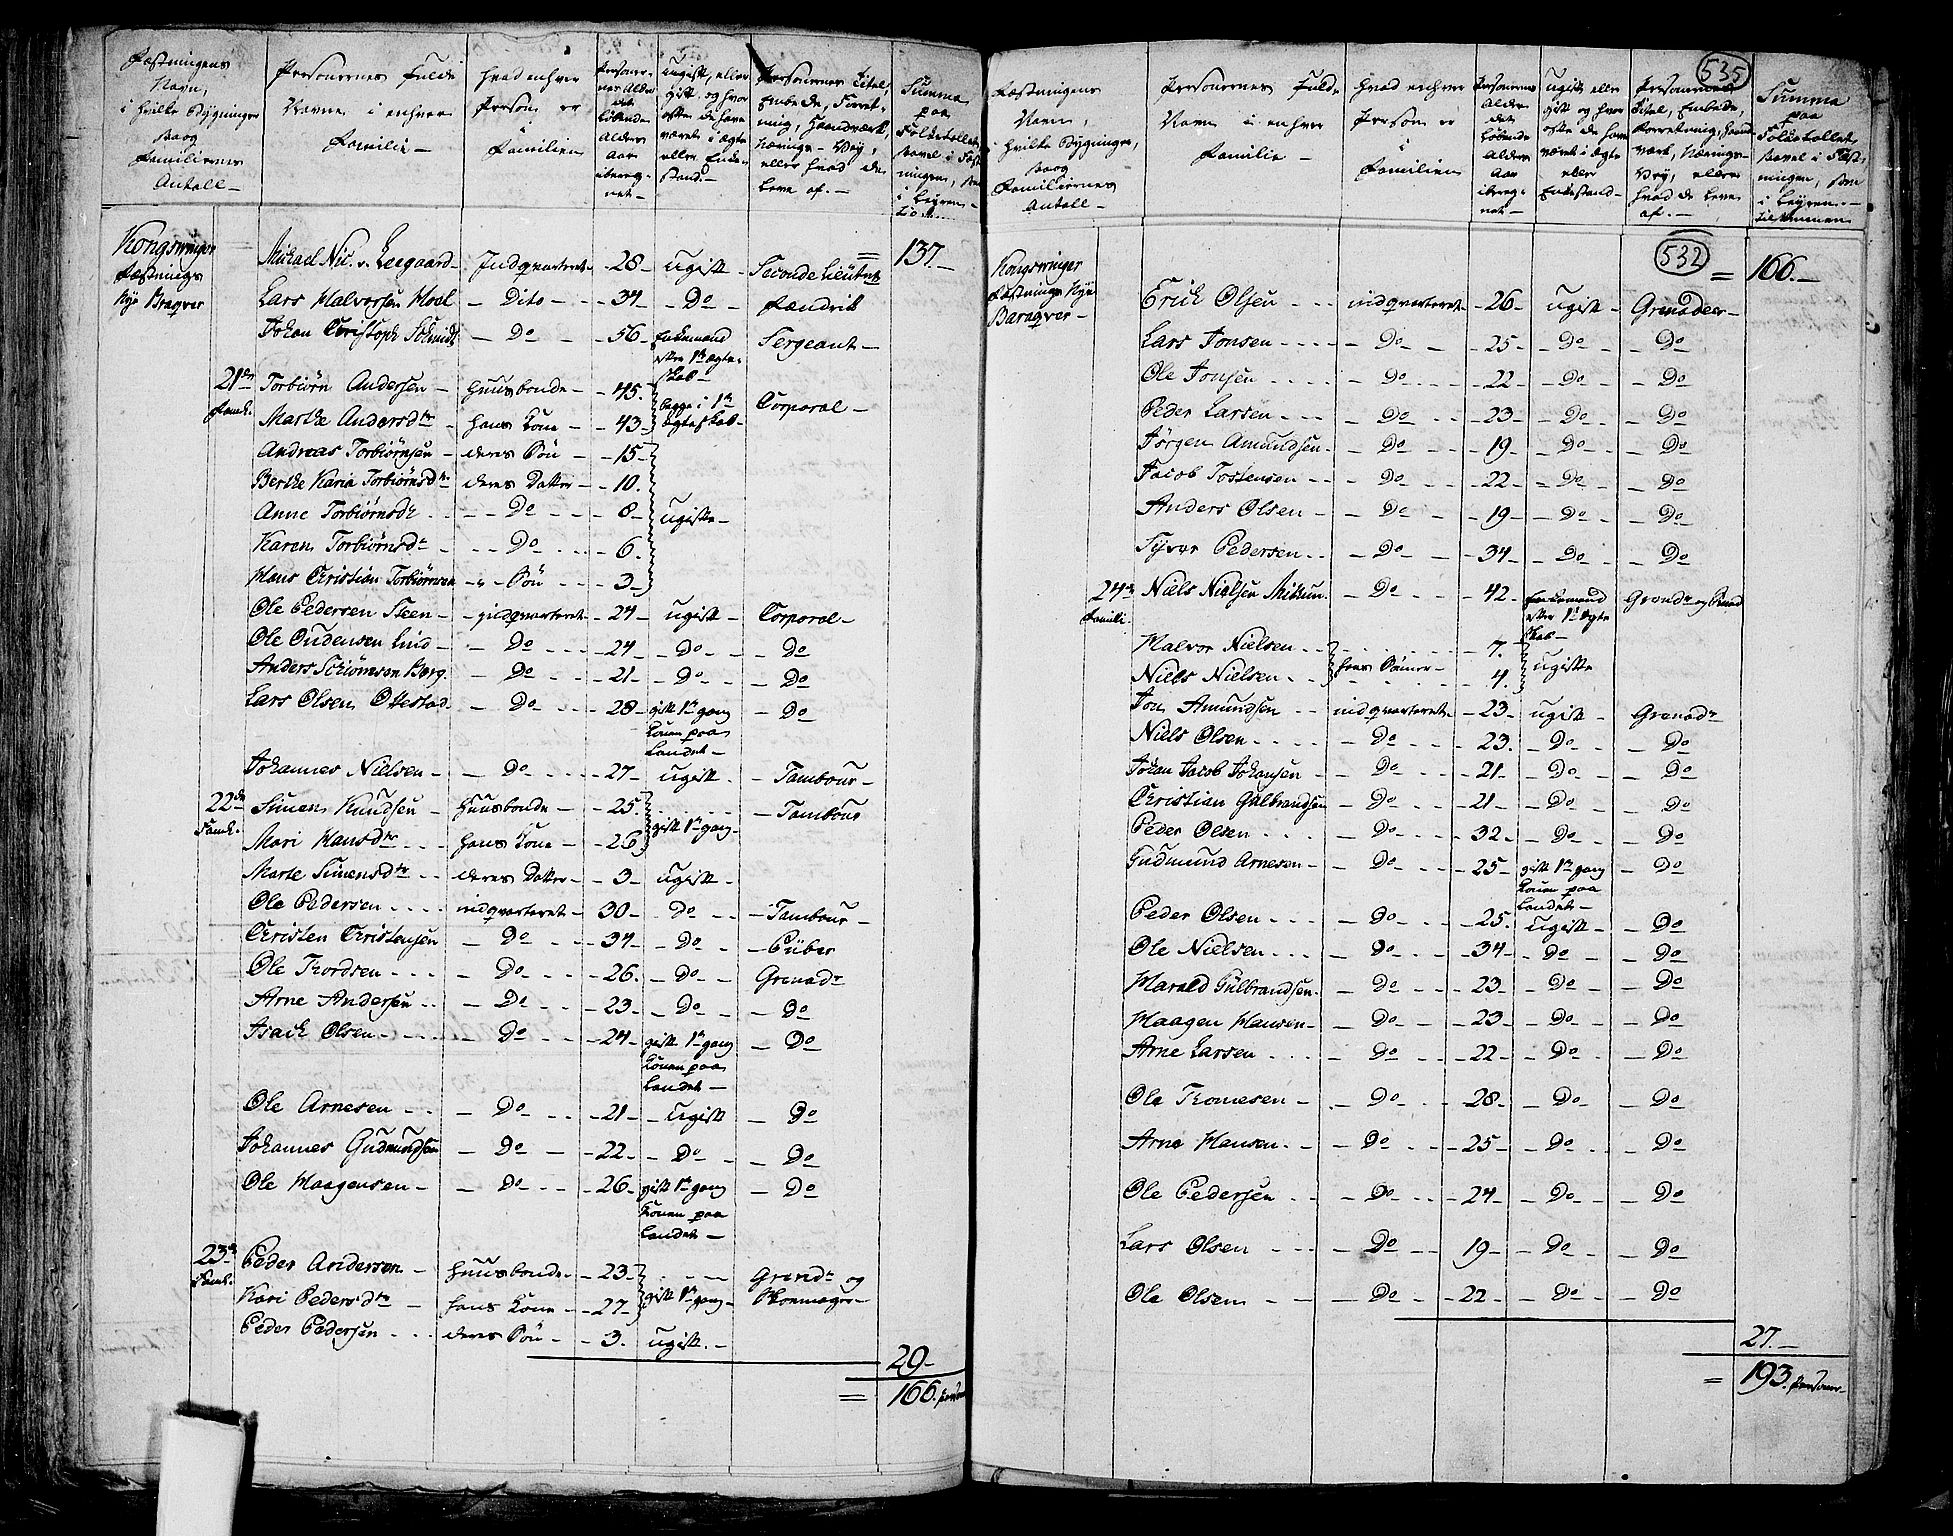 Fæstningens Navn, i hvilke Bygninger saag Familiernes Antall —
Personernes Fulde Navne i enhver Familie —
hvad enhver Person er i Familien
Personernes Alder det løbende Alders aar iberegnet —
Ugift, eller Gift og hvor ofte de have været i Ægte eller Enkestand. —
Personernes Titel, Embede, Forretning, Haandværk, Nærings-Vey, eller hvad de leve af. —
Summa paa Folketallet
Kongswinger Fæstnings Nye Braqver
137. —
Michael Nic. v. Leegaard — Indqvarteret — 28 — ugift — Seconde Lieutnt
Lars Halvorsen Hoel — Dito — 34 — Do — Fændrik
Johan Christoph Schmidt — Do — 56 — Enkemand efter 1te Ægteskab — Sergeant —
21de Famil. Torbiørn Andersen — Huusbonde — 45. begge i 1te Ægteskab — Corporal —
Marthe Andersdtr — hans Kone — 43 —
Andreas Torbiørnsen — deres Søn — 15 —
Berthe Karia Torbiørnsdtr deres Datter — 10.
Anne Torbiørnsdtr — Do — 8 — ugifte —
Karen Torbiørnsdtr — Do — 6.
Hans Christian Torbiørnsen — Søn — 3 —
Ole Pedersen Steen — indqvarteret — 24 — ugift — Corporal —
Ole Oudensen Lind — Do — 24 — Do — Do
Anders Schiørnsen Berg — Do — 21 — Do — Do
Lars Olsen Ottestad — Do — 28 — gift 1te gang Konen paa Landet — Do
Johannes Nielsen — Do — 27 — ugift — Tambour —
22de Famil. Simen Knudsen — Huusbonde — 25. gift 1te gang — Tambour
Mari Hansdtr — hans Kone — 26
Marte Simensdtr — deres Datter — 3 — ugift —
Ole Pedersen — indqvarteret — 30 — Do — Tambour —
Christen Christensen — Do — 34 — Do — Piiber
Ole Thordsen — Do — 26. — Do — Grenadr
Arne Andersen — Do — 23 — Do — Do
Isach Olsen — Do — 24 — gift 1te gang Konen paa Landet — Do
Ole Arnesen — Do — 21 — ugift — Do
Johannes Gudmundsen — Do — 22 — Do — Do
Ole Haagensen — Do — 26 — gift 1te gang Konen paa Landet — Do
23de Famil. Peder Andersen — Huusbonde — 23 — gift 1te gang — Grenadr og Skomager —
Kari Pedersdtr — hans Kone — 27 —
Peder Pedersen — deres Søn — 3. ugift. —
29 —
= 166. Personer
535
Fæstningens Navn, i hvilke Bygninger, saag Familiernes Antall —
Personernes Fulde Navne i enhver Familie —
hvad enhver Person er i Familien
Personernes Alder det løbende Alders Aar iberegnet —
Ugift eller Gift og hvor ofte de have været i Ægte eller Enkestand —
Personernes Titel, Embede, Forretning, Haandværk, Nærings-Vey, eller hvad de leve af. —
Summa paa Folketallet
532
Kongswinger Fæstnings Nye Baraqver —
= 166. —
Erich Olsen — indqvarteret — 26 — ugift — Grenadeer —
Lars Jonsen — Do — 25 — Do — Do
Ole Jonsen — Do — 22 — Do — Do
Peder Larsen — Do — 23 — Do — Do
Jørgen Amundsen — Do — 19 — Do — Do
Jacob Tostensen — Do — 22 — Do — Do
Anders Olsen — Do — 19 — Do — Do
Syver Pedersen — Do — 34 — Do — Do
24de Famili Niels Nielsen Mitsun — Do — 42. Enkemand efter 1te Ægteskab — Grenadr og
Halvor Nielsen — hans Sønner — 7. ugifte
Niels Nielsen — 4.
Jon Amundsen — indqvarteret — 23 — ugift — Grenadr
Niels Olsen — Do — 23. — Do — Do
Johan Jacob Johansen — Do — 21 — Do — Do
Christian Gulbrandsen — Do — 21 — Do — Do
Peder Olsen — Do — 32. — Do — Do
Gudmund Arnesen — Do — 25 — gift 1te gang Konen paa Landet — Do
Peder Olsen — Do — 25. ugift — Do
Ole Nielsen — Do — 34 — Do — Do
Harald Gulbrandsen — Do — 23 — Do — Do
Haagen Hansen — Do — 23 — Do — Do
Arne Larsen — Do — 22 — Do — Do
Ole Thomesen — Do — 28 — Do — Do
Arne Hansen — Do — 25 — Do — Do
Ole Pedersen — Do — 24 — Do — Do
Lars Olsen — Do — 19 — Do — Do
Ole Olsen — Do — 22 — Do — Do
27. —
= 193. Personer —